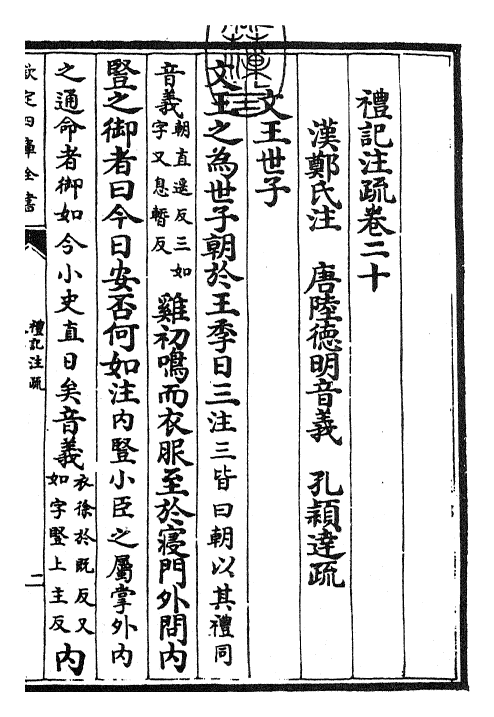 禮記注疏卷二十
漢鄭氏注　唐陸德明音義　孔穎達疏
文王世子
文王之為世子朝於王季日三注三皆曰朝以其禮同
音義朝直遥反三如字又息暫反　雞初鳴而衣服至於寝門外問内
豎之御者曰今日安否何如注内豎小臣之屬掌外内
之通命者御如今小史直日矣音義衣徐於既反又如字豎上主反　内
欽定四庫全書
禮記注疏